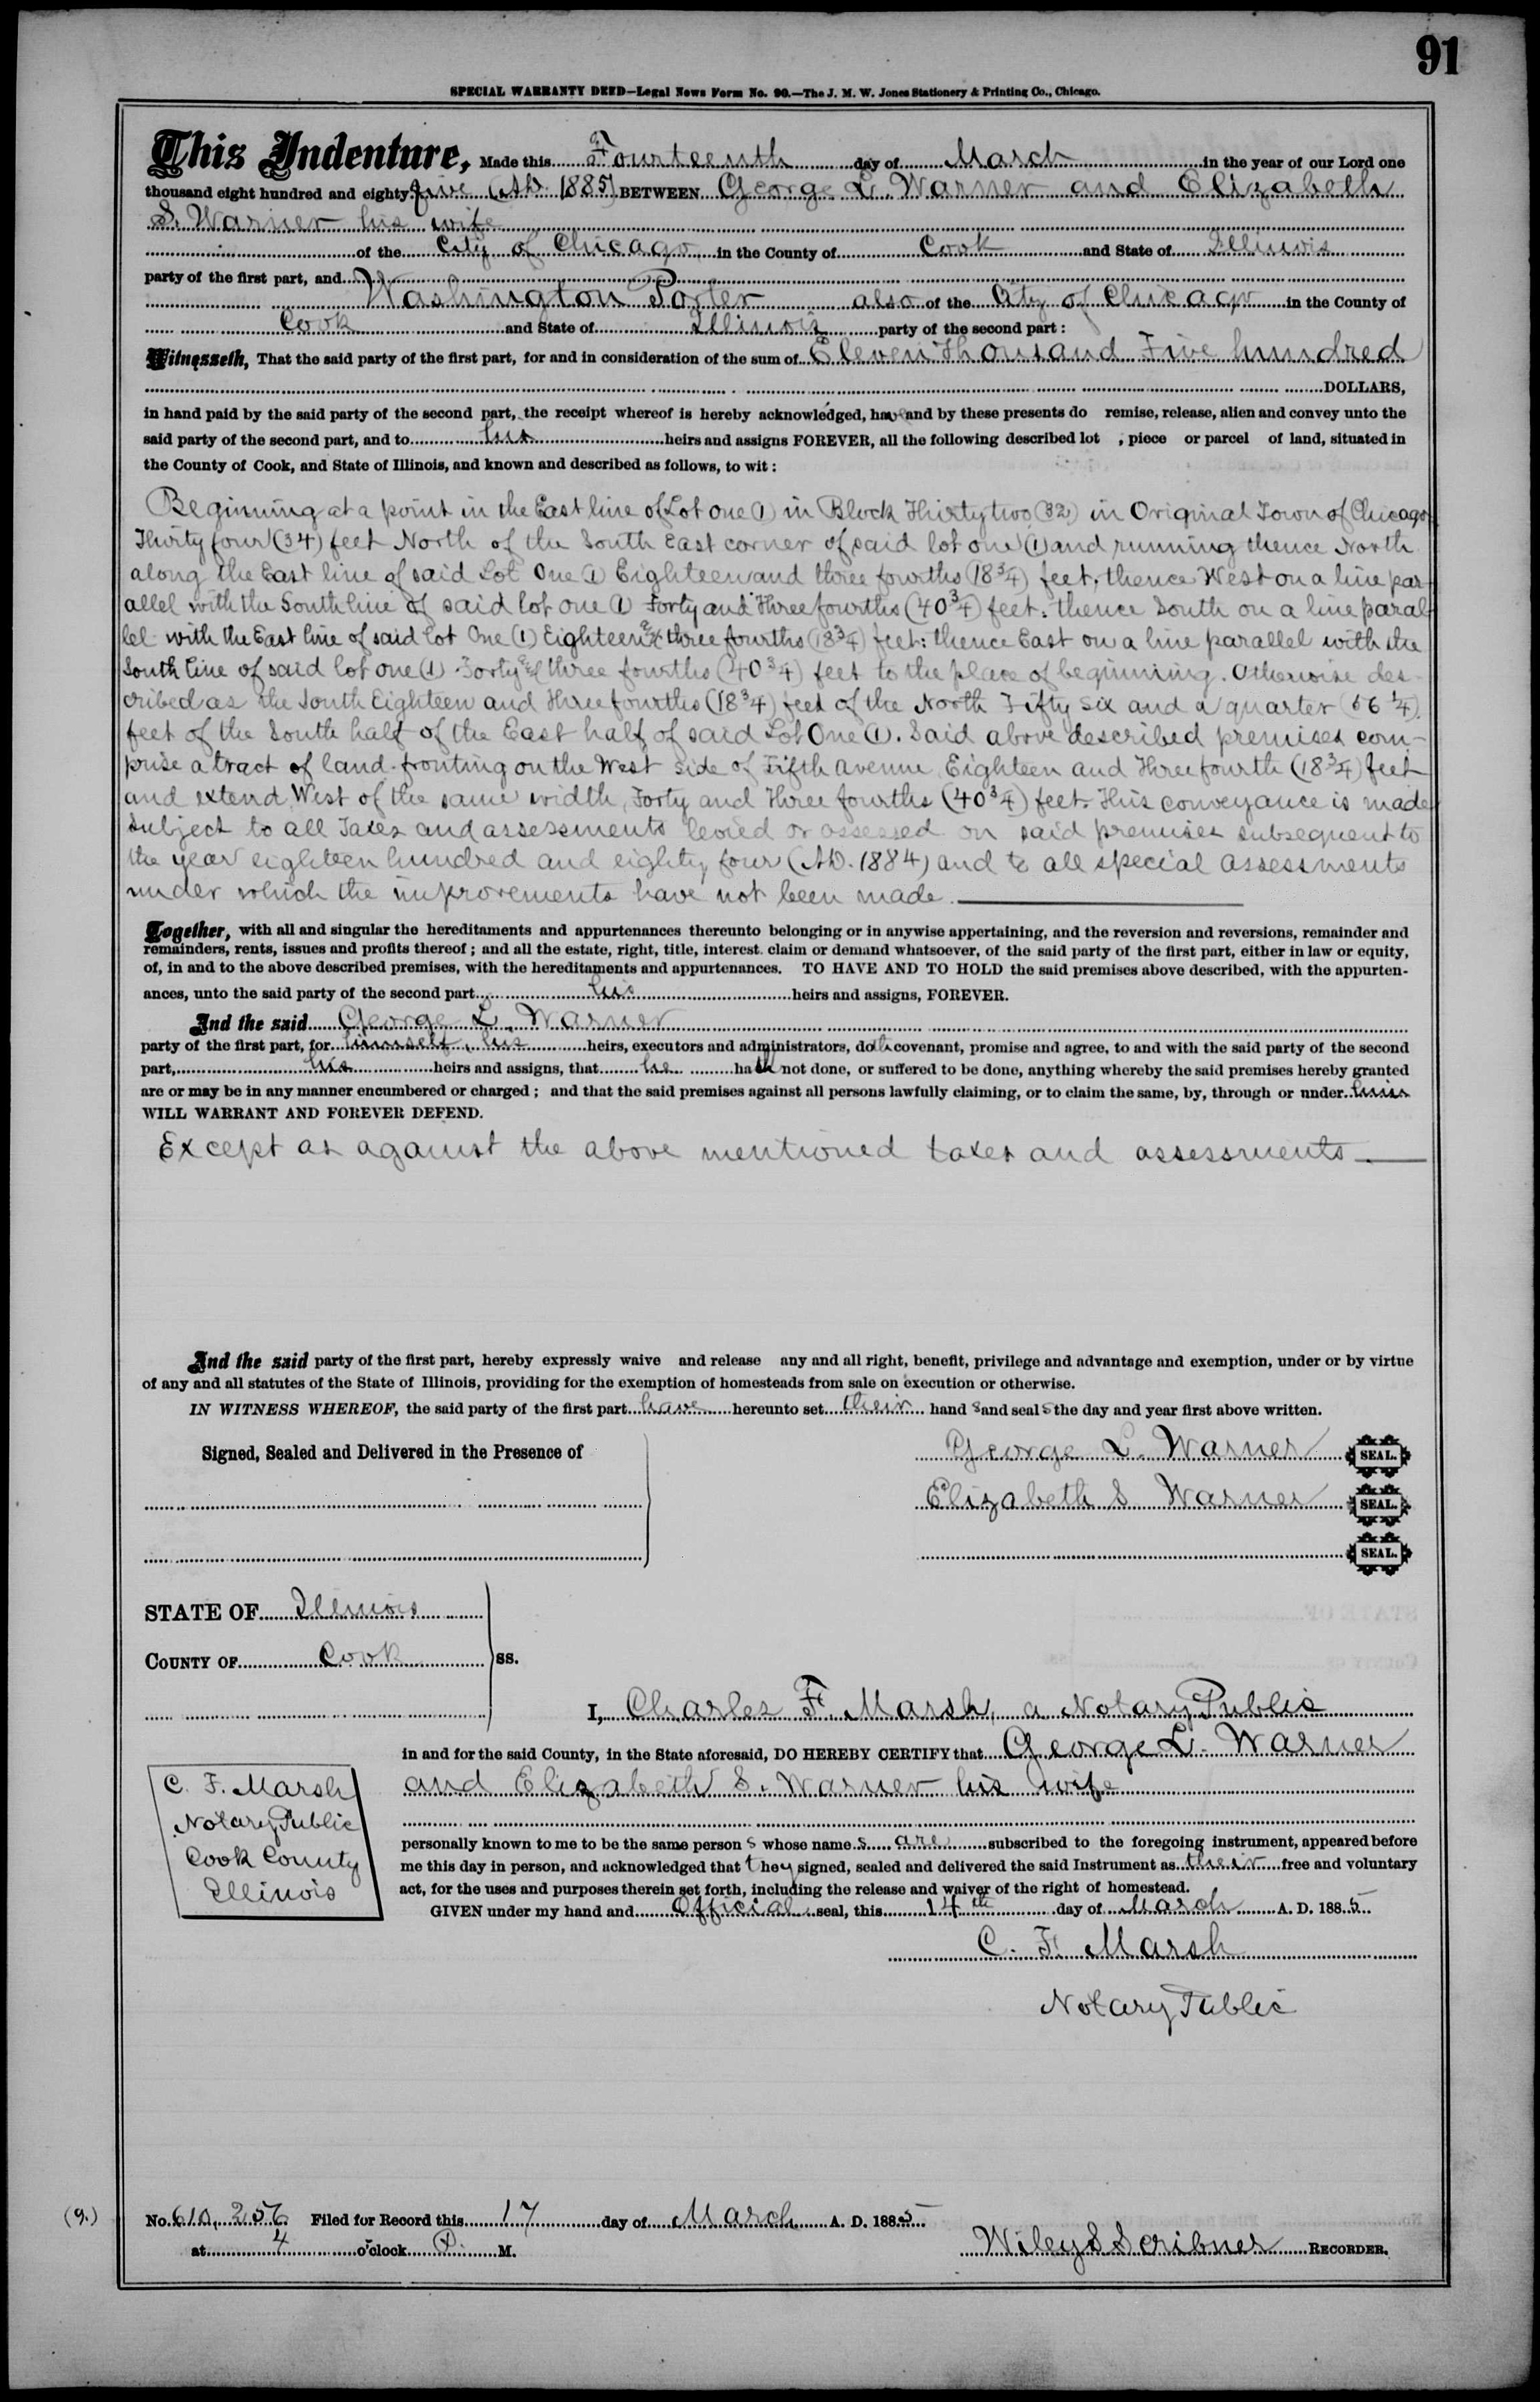 91
SPECIAL WARRANTY DEED—Legal News Form No. 90.—The J. M. W. Jones Stationery & Printing Co., Chicago.
This Indenture, Made this Fourteenth day of March in the year of our Lord one
thousand eight hundred and eighty five (AD. 1885) BETWEEN George L. Warner and Elizabeth
S. Warner his wife
of the City of Chicago in the County of Cook and State of Illinois
party of the first part, and
Washington Porter also of the City of Chicago in the County of
Cook and State of Illinois party of the second part:
Witnesseth, That the said party of the first part, for and in consideration of the sum of Eleven Thousand Five hundred
DOLLARS,
in hand paid by the said party of the second part, the receipt whereof is hereby acknowledged, have and by these presents do remise, release, alien and convey unto the
said party of the second part, and to his heirs and assigns FOREVER, all the following described lot , piece or parcel of land, situated in
the County of Cook, and State of Illinois, and known and described as follows, to wit:
Beginning at a point in the East line of Lot one (1) in Block Thirty two (32) in Original Town of Chicago
Thirty four (34) feet North of the South East corner of said lot one (1) and running thence North
along the East line of said Lot One (1) Eighteen and three fourths (18 3/4) feet; thence West on a line par-
allel with the South line of said lot one (1) Forty and Three fourths (40 3/4) feet: thence South on a line paral-
lel with the East line of said lot One (1) Eighteen & three fourths (18 3/4) feet: thence East on a line parallel with the
South line of said lot one (1) Forty & three fourths (40 3/4) feet to the place of beginning. Otherwise des-
cribed as the South Eighteen and Three fourths (18 3/4) feet of the North Fifty six and a quarter (56 1/4)
feet of the South half of the East half of said Lot One (1). Said above described premises com-
prise a tract of land fronting on the West side of Fifth Avenue Eighteen and Three fourth (18 3/4) feet
and extend West of the same width, Forty and Three fourths (40 3/4) feet. This conveyance is made
subject to all Taxes and assessments levied or assessed on said premises subsequent to
the year eighteen hundred and eighty four (AD. 1884) and to all special assessments
under which the improvements have not been made.
Together, with all and singular the hereditaments and appurtenances thereunto belonging or in anywise appertaining, and the reversion and reversions, remainder and
remainders, rents, issues and profits thereof; and all the estate, right, title, interest. claim or demand whatsoever, of the said party of the first part, either in law or equity,
of, in and to the above described premises, with the hereditaments and appurtenances. TO HAVE AND TO HOLD the said premises above described, with the appurten-
ances, unto the said party of the second part his heirs and assigns, FOREVER.
And the said George L. Warner
party of the first part, for himself, his heirs, executors and administrators, doth covenant, promise and agree, to and with the said party of the second
part, his heirs and assigns, that he hath not done, or suffered to be done, anything whereby the said premises hereby granted
are or may be in any manner encumbered or charged; and that the said premises against all persons lawfully claiming, or to claim the same, by, through or under him
WILL WARRANT AND FOREVER DEFEND.
Except as against the above mentioned taxes and assessments.
And the said party of the first part, hereby expressly waive and release any and all right, benefit, privilege and advantage and exemption, under or by virtue
of any and all statutes of the State of Illinois, providing for the exemption of homesteads from sale on execution or otherwise.
IN WITNESS WHEREOF, the said party of the first part have hereunto set their hand s and seal s the day and year first above written.
Signed, Sealed and Delivered in the Presence of
George L. Warner SEAL.
Elizabeth S Warner SEAL.
SEAL.
STATE OF Illinois
COUNTY OF Cook ss.
I, Charles F. Marsh, a Notary Public
in and for the said County, in the State aforesaid, DO HEREBY CERTIFY that George L. Warner
and Elizabeth S. Warner his wife
personally known to me to be the same person s whose name s are subscribed to the foregoing instrument, appeared before
me this day in person, and acknowledged that they signed, sealed and delivered the said Instrument as their free and voluntary
act, for the uses and purposes therein set forth, including the release and waiver of the right of homestead.
GIVEN under my hand and Official seal, this 14th day of March A. D. 1885
C. F. Marsh
Notary Public
Cook County
Illinois
C. F. Marsh
Notary Public
(9.) No. 610,256 Filed for Record this 17 day of March A. D. 1885
at 4 o'clock P. M.
Wiley S Scribner RECORDER.